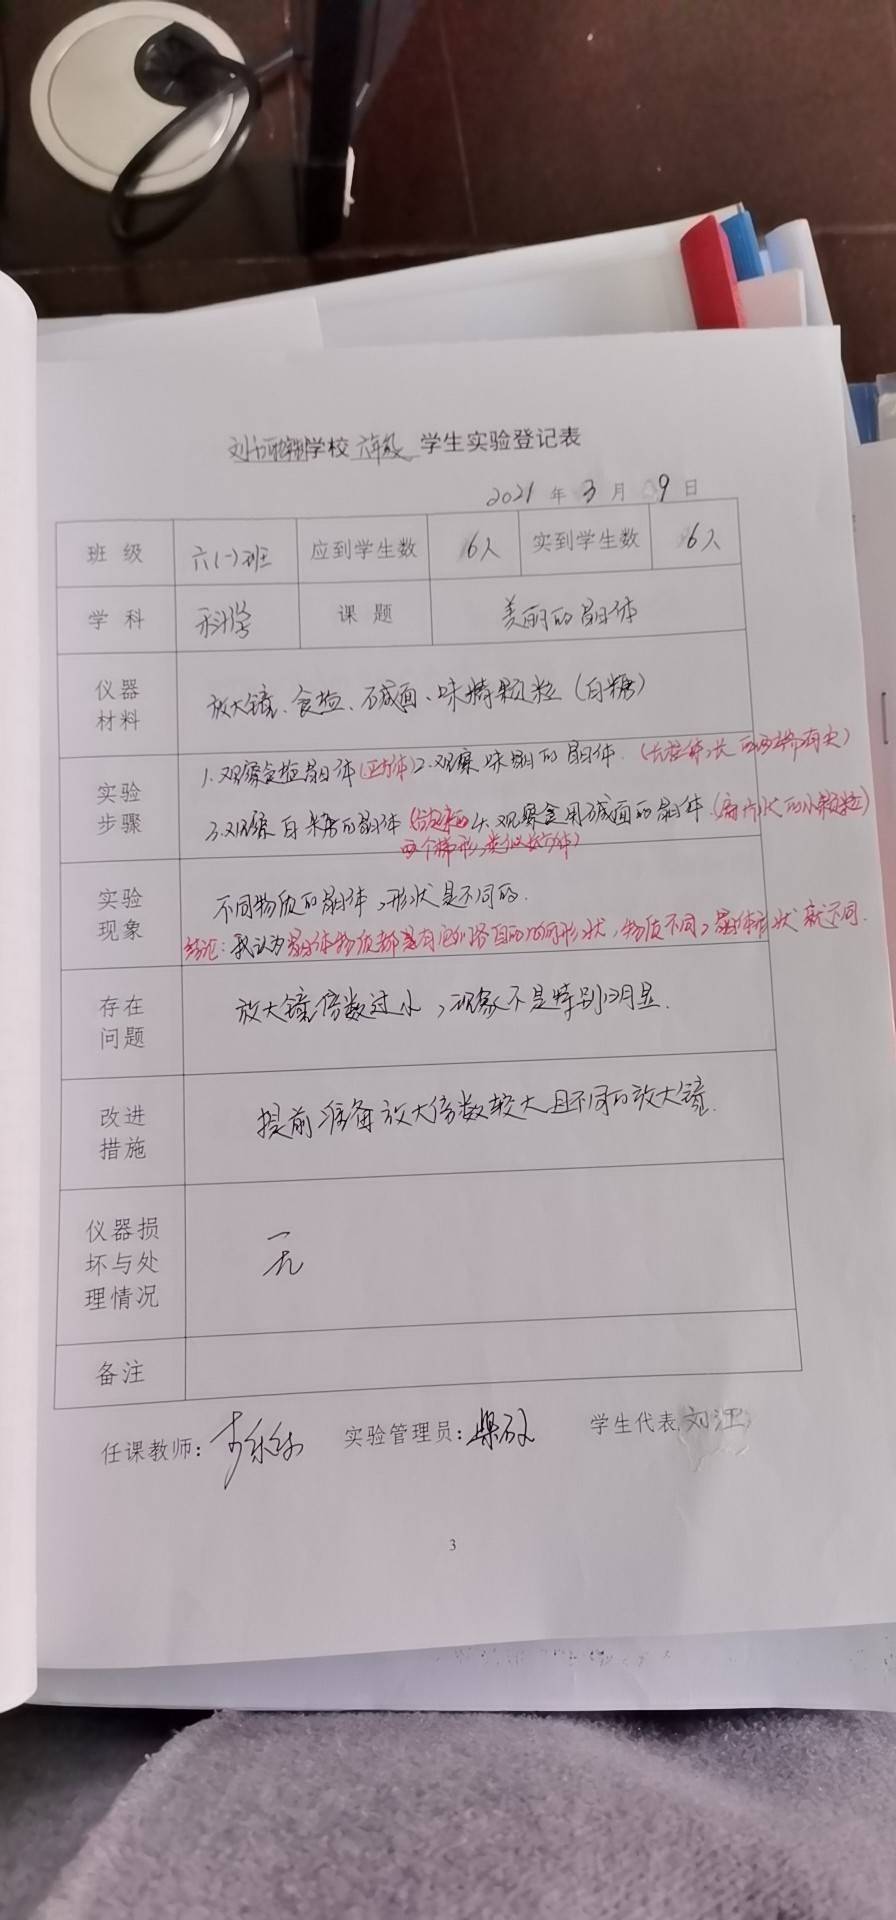 学校 六年级 学生实验登记表
2021 年 3 月 9 日
班 级 六(一)班 应到学生数 6人 实到学生数 6人
学 科 科学 课 题 美丽的晶体
仪器材料 放大镜、食盐、碱面、味精颗粒(白糖)
实验步骤 1.观察食盐晶体(正方体)2.观察味精的晶体.(长柱体,长的两端有尖)
3.观察白糖的晶体( 4.观察食用碱面的晶体.(薄片状的小颗粒)
两个梯形,类似长方体)
实验现象 不同物质的晶体,形状是不同的.
结论:我认为晶体物质都是有它们各自的几何形状,物质不同,晶体形状就不同.
存在问题 放大镜倍数过小,现象不是特别明显.
改进措施 提前准备放大倍数较大且不同的放大镜.
仪器损坏与处理情况 无
备注
任课教师: 实验管理员: 学生代表 刘
3